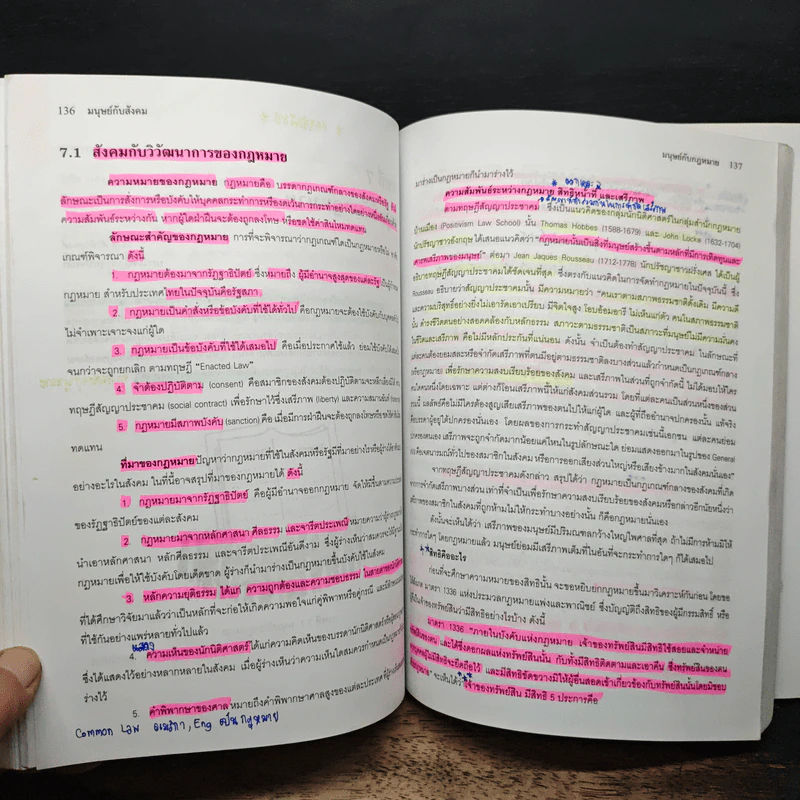 136 มนุษย์กับสังคม
7.1 สังคมกับวิวัฒนาการของกฎหมาย
ความหมายของกฎหมาย กฎหมายคือ บรรดากฎเกณฑ์กลางของสังคมหรือรัฐ
ลักษณะเป็นการสั่งการหรือบังคับให้บุคคลกระทำการหรืองดเว้นการกระทำอย่างใดอย่างหนึ่ง
ความสัมพันธ์ระหว่างกัน หากผู้ใดฝ่าฝืนจะต้องถูกลงโทษ หรือชดใช้ค่าสินไหมทดแทน
ลักษณะสำคัญของกฎหมาย การที่จะพิจารณาว่ากฎเกณฑ์ใดเป็นกฎหมายหรือไม่
เกณฑ์พิจารณา ดังนี้
1. กฎหมายต้องมาจากรัฏฐาธิปัตย์ ซึ่งหมายถึง ผู้มีอำนาจสูงสุดของแต่ละรัฐ
กฎหมาย สำหรับประเทศไทยในปัจจุบันคือรัฐสภา
2. กฎหมายเป็นคำสั่งหรือข้อบังคับที่ใช้ได้ทั่วไป คือกฎหมายจะต้องใช้บังคับกับบุคคล
ไม่จำเพาะเจาะจงแก่ผู้ใด
3. กฎหมายเป็นข้อบังคับที่ใช้ได้เสมอไป คือเมื่อประกาศใช้แล้ว ย่อมมีผลใช้บังคับ
จนกว่าจะถูกยกเลิก ตามทฤษฎี "Enacted Law"
4. จำต้องปฏิบัติตาม (consent) คือสมาชิกของสังคมต้องปฏิบัติตาม
ทฤษฎีสัญญาประชาคม (social contract) เพื่อรักษาไว้ซึ่งเสรีภาพ (liberty) และ
5. กฎหมายมีสภาพบังคับ (sanction) คือ เมื่อมีการฝ่าฝืนจะต้องถูกลงโทษ
ทดแทน
ที่มาของกฎหมาย ปัญหาว่ากฎหมายที่ใช้ในสังคมหรือรัฐมีที่มาอย่างไรหรือ
อย่างอะไรในสังคม ในที่นี้อาจสรุปที่มาของกฎหมายได้ ดังนี้
1. กฎหมายมาจากรัฏฐาธิปัตย์ คือผู้มีอำนาจออกกฎหมาย จัดให้มีขึ้น
ของรัฏฐาธิปัตย์ของแต่ละสังคม
2. กฎหมายมาจากหลักศาสนา ศีลธรรม และจารีตประเพณี
นำเอาหลักศาสนา หลักศีลธรรม และจารีตประเพณีอันดีงาม
กฎหมายเพื่อให้ใช้บังคับโดยเด็ดขาด ผู้ร่างก็นำมาร่างเป็นกฎหมายขึ้นบังคับใช้ในสังคม
3. หลักความยุติธรรม ได้แก่ ความถูกต้องและความชอบธรรม
ที่ได้ศึกษาวิจัยมาแล้วว่าเป็นหลักที่จะก่อให้เกิดความพอใจแก่คู่พิพาทหรือคู่กรณี
ที่ใช้กันอย่างแพร่หลายทั่วไปแล้ว
4. ความเห็นของนักนิติศาสตร์ ได้แก่ความคิดเห็นของบรรดานักนิติศาสตร์
ซึ่งได้แสดงไว้อย่างหลากหลายในสังคม เมื่อผู้ร่างเห็นว่าความเห็นใดสมควร
ร่างไว้
5. คำพิพากษาของศาล หมายถึงคำพิพากษาศาลสูงของแต่ละประเทศ
Common Law อเมริกา, Eng เป็นกฎหมาย
มนุษย์กับกฎหมาย 137
มาร่างเป็นกฎหมายก็นำมาร่างไว้
ความสัมพันธ์ระหว่างกฎหมาย สิทธิหน้าที่ และเสรีภาพ
ตามทฤษฎีสัญญาประชาคม ซึ่งเป็นแนวคิดของกลุ่มนักนิติศาสตร์ในกลุ่มสำนักกฎหมาย
บ้านเมือง (Positivism Law School) นั้น Thomas Hobbes (1588-1679) และ John Locke (1632-1704)
นักปรัชญาชาวอังกฤษ ได้เสนอแนวคิดว่า "กฎหมายนั้นเป็นสิ่งที่มนุษย์สร้างขึ้นตามหลักที่มีการเทิดทูนและ
เคารพเสรีภาพของมนุษย์" ต่อมา Jean Jaques Rousseau (1712-1778) นักปรัชญาชาวฝรั่งเศส ได้เป็นผู้
อธิบายทฤษฎีสัญญาประชาคมได้ชัดเจนที่สุด ซึ่งตรงกับแนวคิดในการจัดทำกฎหมายในปัจจุบันนี้ ซึ่ง
Rousseau อธิบายว่าสัญญาประชาคมนั้น มีความหมายว่า "คนเราตามสภาพธรรมชาติดั้งเดิม มีความดี
และความบริสุทธิ์อย่างยิ่งไม่เอารัดเอาเปรียบ มีจิตใจสูง โอบอ้อมอารี ไม่เห็นแก่ตัว คนในสภาพธรรมชาติ
นั้น ดำรงชีวิตตนอย่างสอดคล้องกับหลักธรรม สภาวะตามธรรมชาติเป็นสภาวะที่มนุษย์ไม่มีความมั่นคง
ในชีวิตและเสรีภาพ คือไม่มีหลักประกันที่แน่นอน ดังนั้น จำเป็นต้องทำสัญญาประชาคม ในลักษณะที่
แต่ละคนต้องยอมสละหรือจำกัดเสรีภาพที่ตนมีอยู่ตามธรรมชาติลงบางส่วนแล้วก่อกำหนดเป็นกฎเกณฑ์
กลาง เพื่อรักษาความสงบเรียบร้อยของสังคม และเสรีภาพในส่วนที่ถูกจำกัดนี้ ไม่ได้มอบให้ใคร
คนใดคนหนึ่งโดยเฉพาะ แต่ต่างก็โอนเสรีภาพนี้ให้แก่สังคมส่วนรวม โดยที่แต่ละคนเป็นส่วนหนึ่งของส่วน
จากทฤษฎีสัญญาประชาคมดังกล่าว สรุปได้ว่า กฎหมายเป็นกฎเกณฑ์กลางของสังคมที่เกิด
จากการจำกัดเสรีภาพบางส่วน เท่าที่จำเป็นเพื่อรักษาความสงบเรียบร้อยของสังคมหรือกล่าวอีกนัยหนึ่งว่า
เสรีภาพของสมาชิกในสังคมที่ถูกห้ามไม่ให้กระทำบางอย่างนั้น ก็คือกฎหมายนั่นเอง
ดังนั้นจะเห็นได้ว่า เสรีภาพของมนุษย์มีปริมณฑลกว้างใหญ่ไพศาลที่สุด ถ้าไม่มีการห้ามมิให้
กระทำการใดๆ โดยกฎหมายแล้ว มนุษย์ย่อมมีเสรีภาพเต็มที่ในอันที่จะกระทำการใดๆ ก็ได้เสมอไป
สิทธิคืออะไร
ก่อนที่จะศึกษาความหมายของสิทธินั้น จะขอหยิบยกกฎหมายขึ้นมาวิเคราะห์กันก่อน โดยขอ
ใช้มาตรา 1336 แห่งประมวลกฎหมายแพ่งและพาณิชย์ ซึ่งบัญญัติถึงสิทธิของผู้มีกรรมสิทธิ์ หรือ
เป็นเจ้าของทรัพย์สินว่ามีสิทธิอย่างไรบ้าง ดังนี้
มาตรา 1336 "ภายในบังคับแห่งกฎหมาย เจ้าของทรัพย์สินมีสิทธิใช้สอยและจำหน่าย
ทรัพย์สินของตน และได้ซึ่งดอกผลแห่งทรัพย์สินนั้น กับทั้งมีสิทธิติดตามและเอาคืน ซึ่งทรัพย์สินของตน
จากบุคคลผู้ไม่มีสิทธิจะยึดถือไว้ และมีสิทธิขัดขวางมิให้ผู้อื่นสอดเข้าเกี่ยวข้องกับทรัพย์สินนั้นโดยมิชอบ
ด้วยกฎหมาย" จะเห็นได้ว่า เจ้าของทรัพย์สิน มีสิทธิ 5 ประการคือ